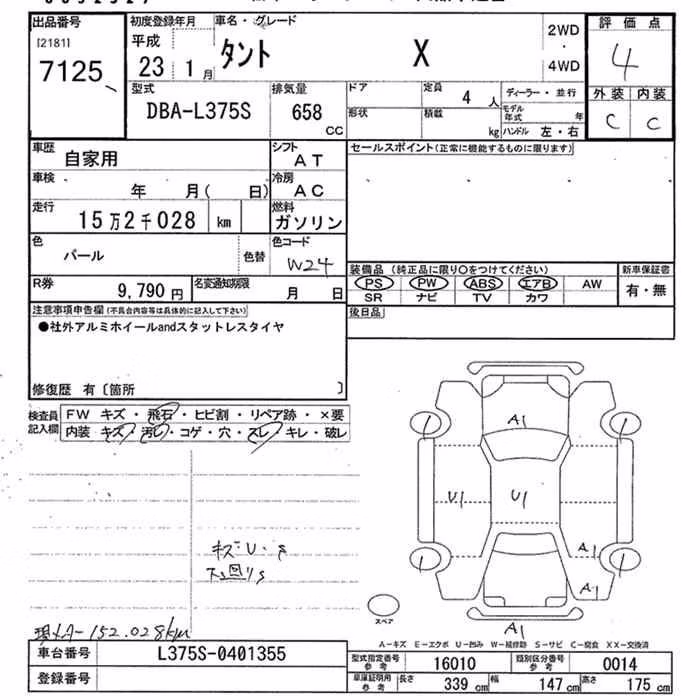 出品番号
[2181]
7125
初度登録年月
平成
23 1月
車名・グレード
タント X
2WD
・
4WD
評価点
4
外装 内装
C C
型式
DBA-L375S
排気量
658
CC
ドア
形状
定員
4人
積載
kg
ディーラー・並行
モデル年式 年
ハンドル 左・右
車歴
自家用
シフト
AT
セールスポイント(正常に機能するものに限ります)
車検
年 月( 日)
冷房
AC
走行
15万2千028 km
燃料
ガソリン
色
パール
色替
色コード
W24
装備品(純正品に限り〇をつけてください)
PS PW ABS エアB AW
SR ナビ TV カワ
新車保証書
有・無
R券
9,790円
名変通知期限
月 日
後日品
注意事項申告欄(不具合内容等は具体的に記入して下さい)
●社外アルミホイールandスタットレスタイヤ
修復歴 有〔箇所 〕
検査員記入欄
FW キズ・飛石・ヒビ割・リペア跡・×要
内装 キズ・汚レ・コゲ・穴・スレ・キレ・破レ
A1
U1
U1
A1
A1
A1
スペア
キズ U・
下回りS
現メター152.028km
A-キズ E-エクボ U-凹み W-補修跡 S-サビ C-腐食 XX-交換済
車台番号
L375S-0401355
登録番号
型式指定番号参考
16010
類別区分番号参考
0014
車庫証明用参考
長さ 339cm 幅 147cm 高さ 175cm